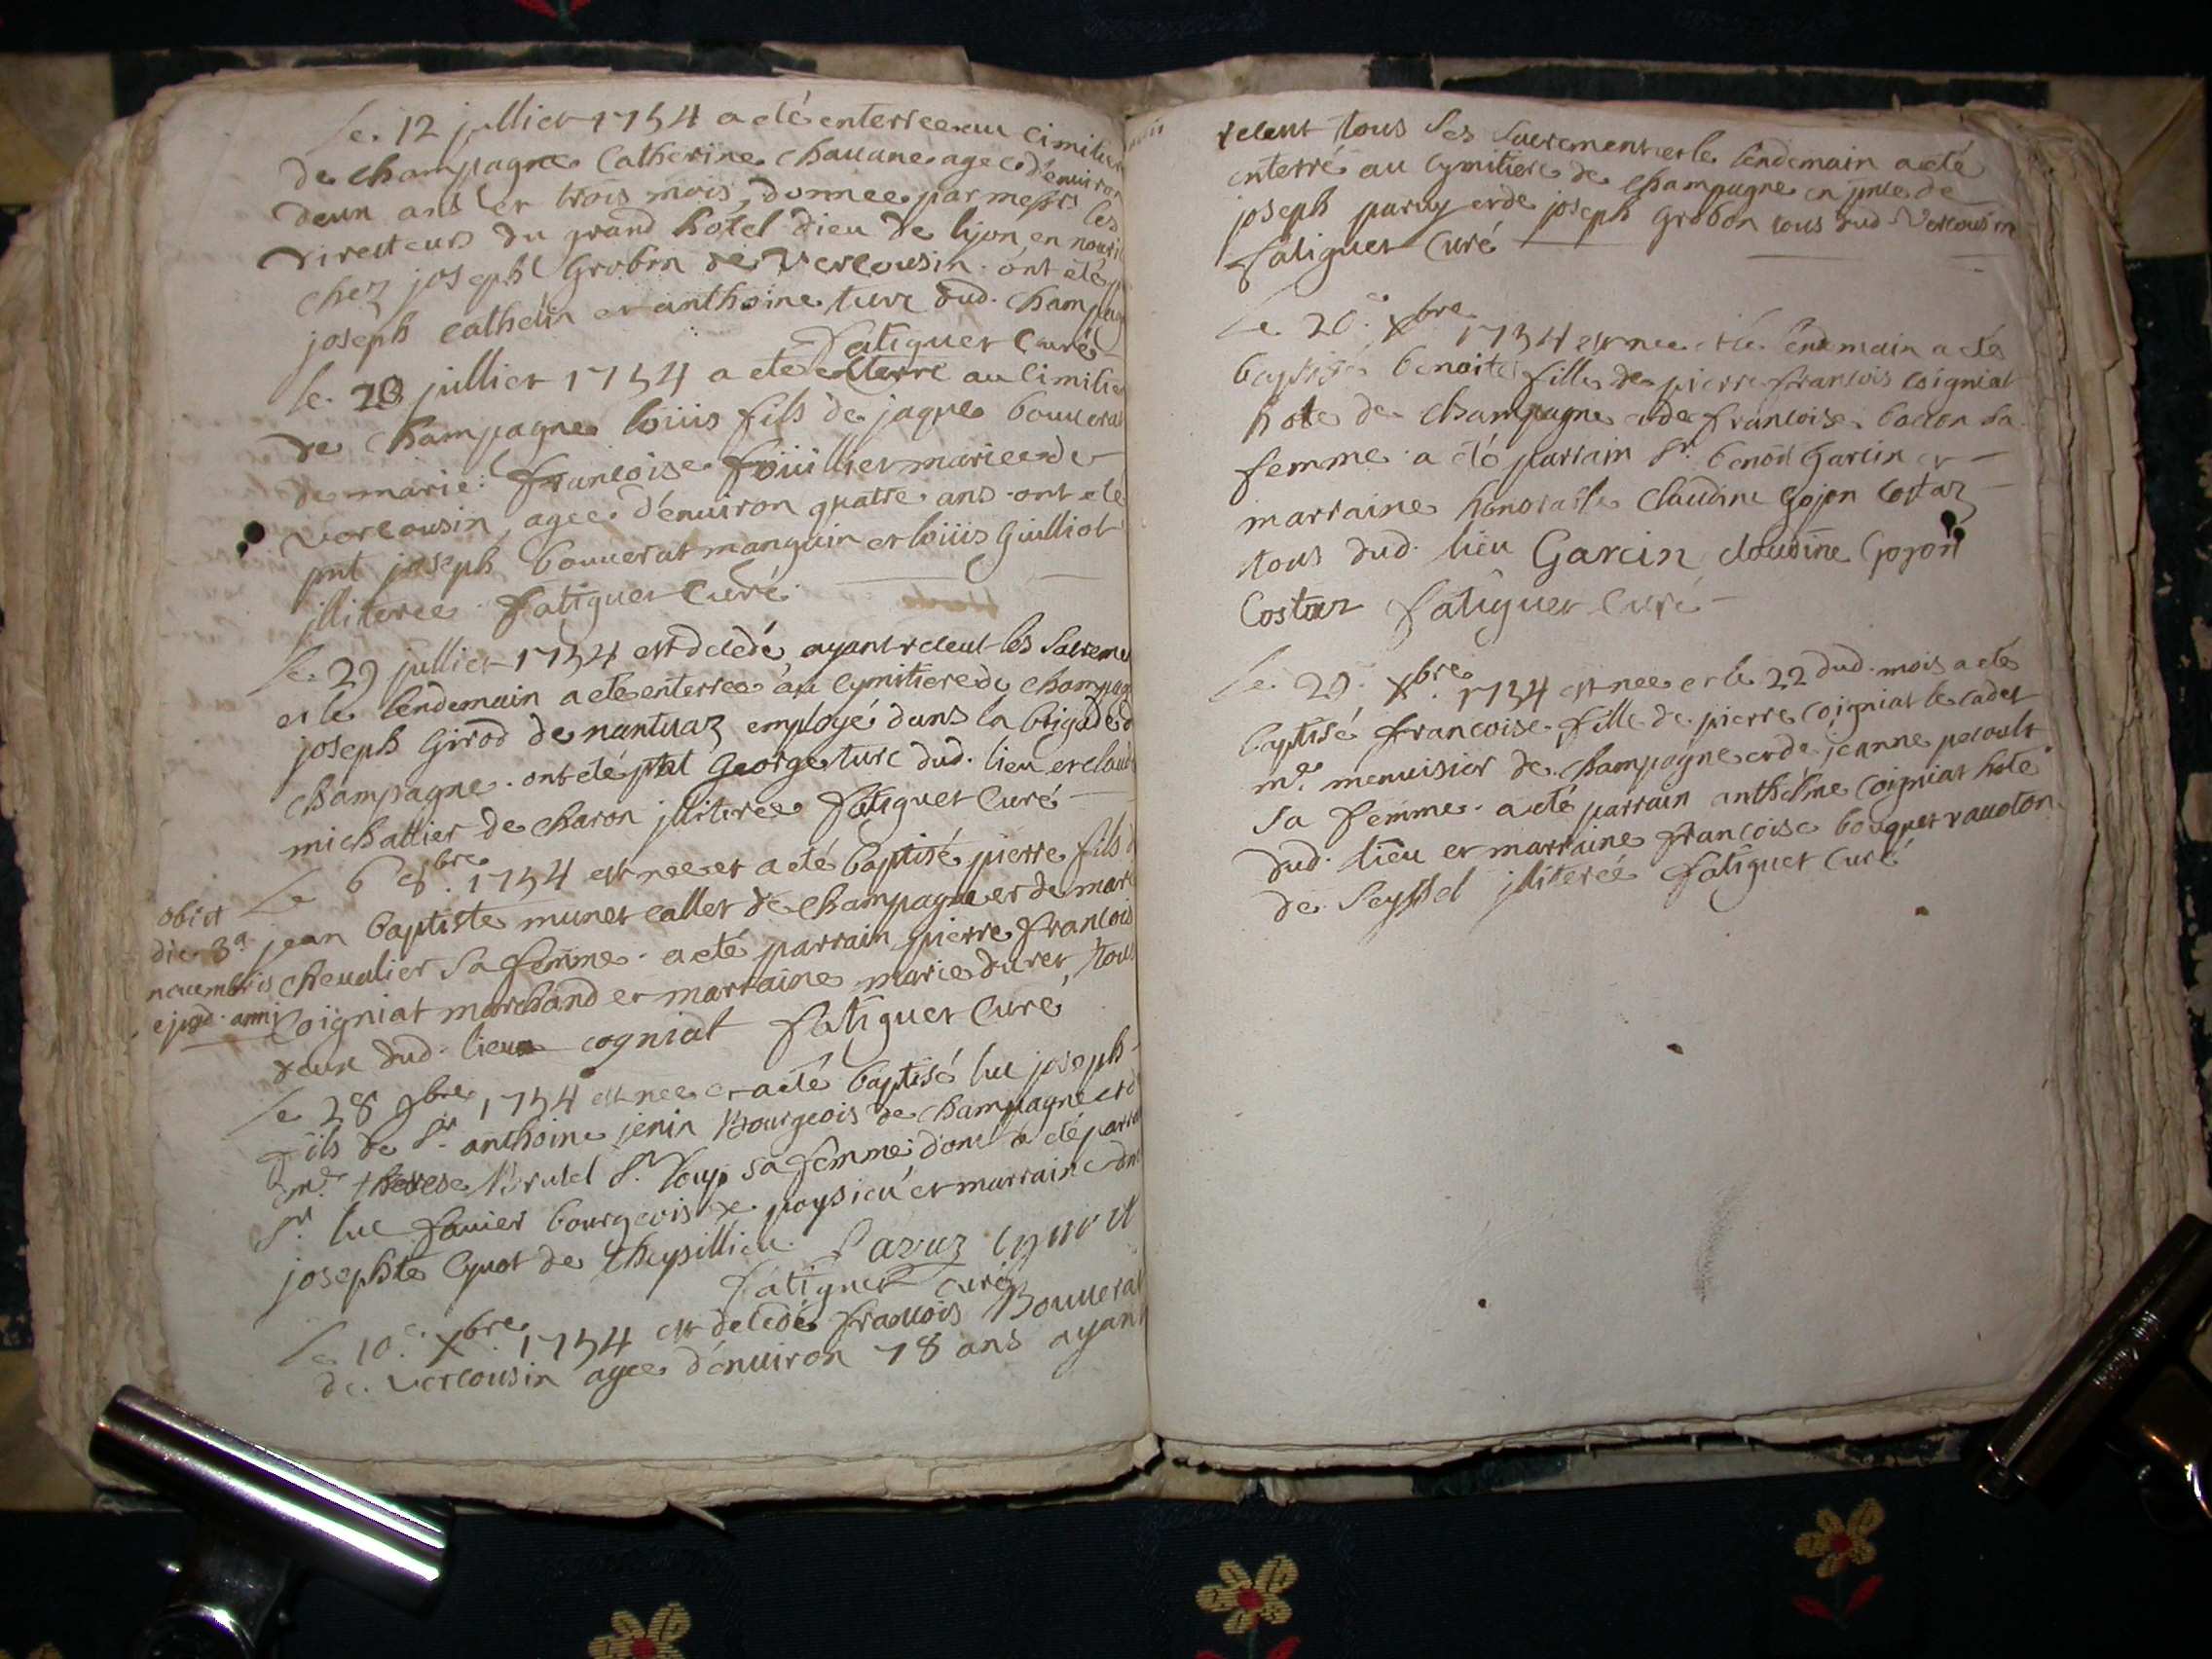 Le 12 jullier 1754 a eté enterree au cimitier
de champagne Catherine chavane agee d'environ
deun ans et trois mois, donnee par messrs les
directeurs du grand hotel Dieu de lyon, en nouri
chez joseph Grobon de Vercousin. ont eté
joseph cathelin et anthoine turc dud. champag
fatiguet Curé
le 20 jullier 1754 a eté enterré au cimitier
de champagne loüis fils de jaque bouverat
de marie françoise foüillet mariee de
vercousin, agee d'environ quatre ans ont eté
pnt joseph bouverat manguin et loüis Guilliot
jlliteree fatiguet Curé
le 29 jullier 1754 est decedé ayant receut les Sacreme
et le lendemain a eté enterree au cymitiere de champag
joseph Girod de nantuaz employé dans la brigade d
champagne. ont eté pnt George turc dud. lieu et claud
michallier de charon jlliteree fatiguet Curé
Le 6 8bre 1754 est nee et a eté baptisé pierre fils d
jean baptiste munet callet de champagne et de mari
chevalier sa femme. a eté parrain pierre françois
Coigniat marchand et marraine marie duret, tous
deux dud. lieu cogniat fatiguet Curé
obiit
die 3a
novembris
ejusd. anni
le 28 9bre 1754 est nee et a eté baptisé luc joseph
fils de Sr. anthoine jenin Bourgeois de champagne et d
me. therese Brulel St. loup sa femme dont a eté parra
Sr. luc favier bourgeois de poysieu et marraine dme
josephte Cyvot de Theysillieu.
fatiguet curé
le 10e. Xbre 1754 est decedé françois Bouverat
de vercousin agee d'environ 78 ans ayant
receut tous ses sacrements et le lendemain a eté
enterré au cymitiere de champagne en pnce de
joseph paruy et de joseph Grobon tous dud. Vercousin
fatiguet Curé
le 20e. Xbre 1754 est nee et le lendemain a eté
baptisé benoite fille de pierre françois coigniat
hote de champagne et de françoise baclon sa
femme. a eté parrain Sr. benoit Garcin et
marraine honorable claudine Gojon Costaz
tous dud. lieu Garcin claudine Gojon
Costaz fatiguet Curé
le 20. Xbre. 1754 est nee et le 22 dud. mois a eté
baptisé francoise fille de pierre coigniat le cadet
me. menuisier de champagne et de jeanne pecoult
sa femme. a eté parrain anthelme Coigniat hote
dud. lieu et marraine françoise bouquet vauoton
de Seyssel jlliterée fatiguet Curé